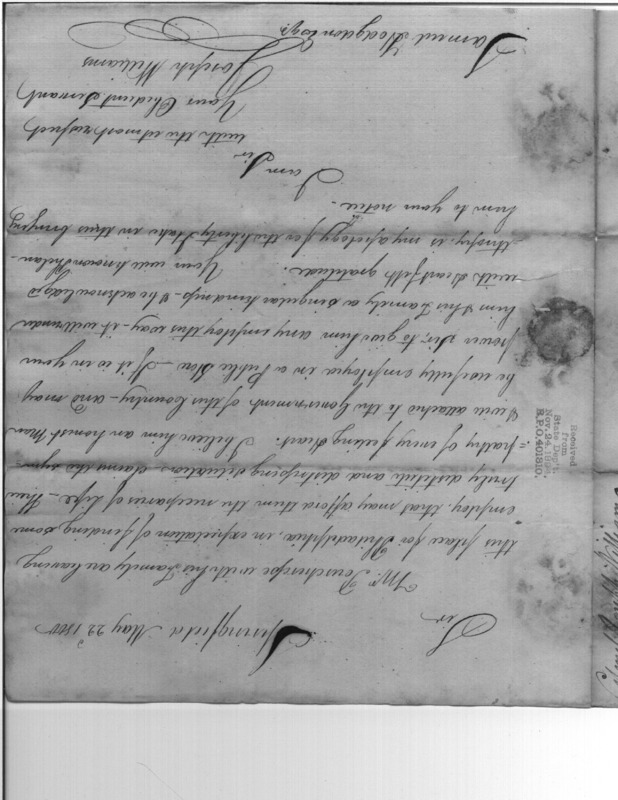 Springfield May 22d 1800
Sir
Mr. with his Family are leaving
this place for Philadelphia, in expectation of finding some
employ that may afford them the necessaries of Life - Their
truly destitute and distressing situation claim the sym
=pathy of every feeling heart. I believe him an honest Man
& well attached to the Government of this Country - and may
be usefully employed in a Public Store - If it is in your
power Sir, to give him any employ this way - it will render
him & his Family a singular kindness - & be acknowledg'd
with Heartfelt gratitude. Your well known Philan-
-thropy, is my apology for the liberty I take in thus bringing
him to your notice -
I am
Sir
with the utmost respect
Your Obedient Servant
Joseph Williams
Samuel Hodgdon Esqr.
Received
from
State Dep't.
Nov. 24,
R.P.O. 401810.
Williams